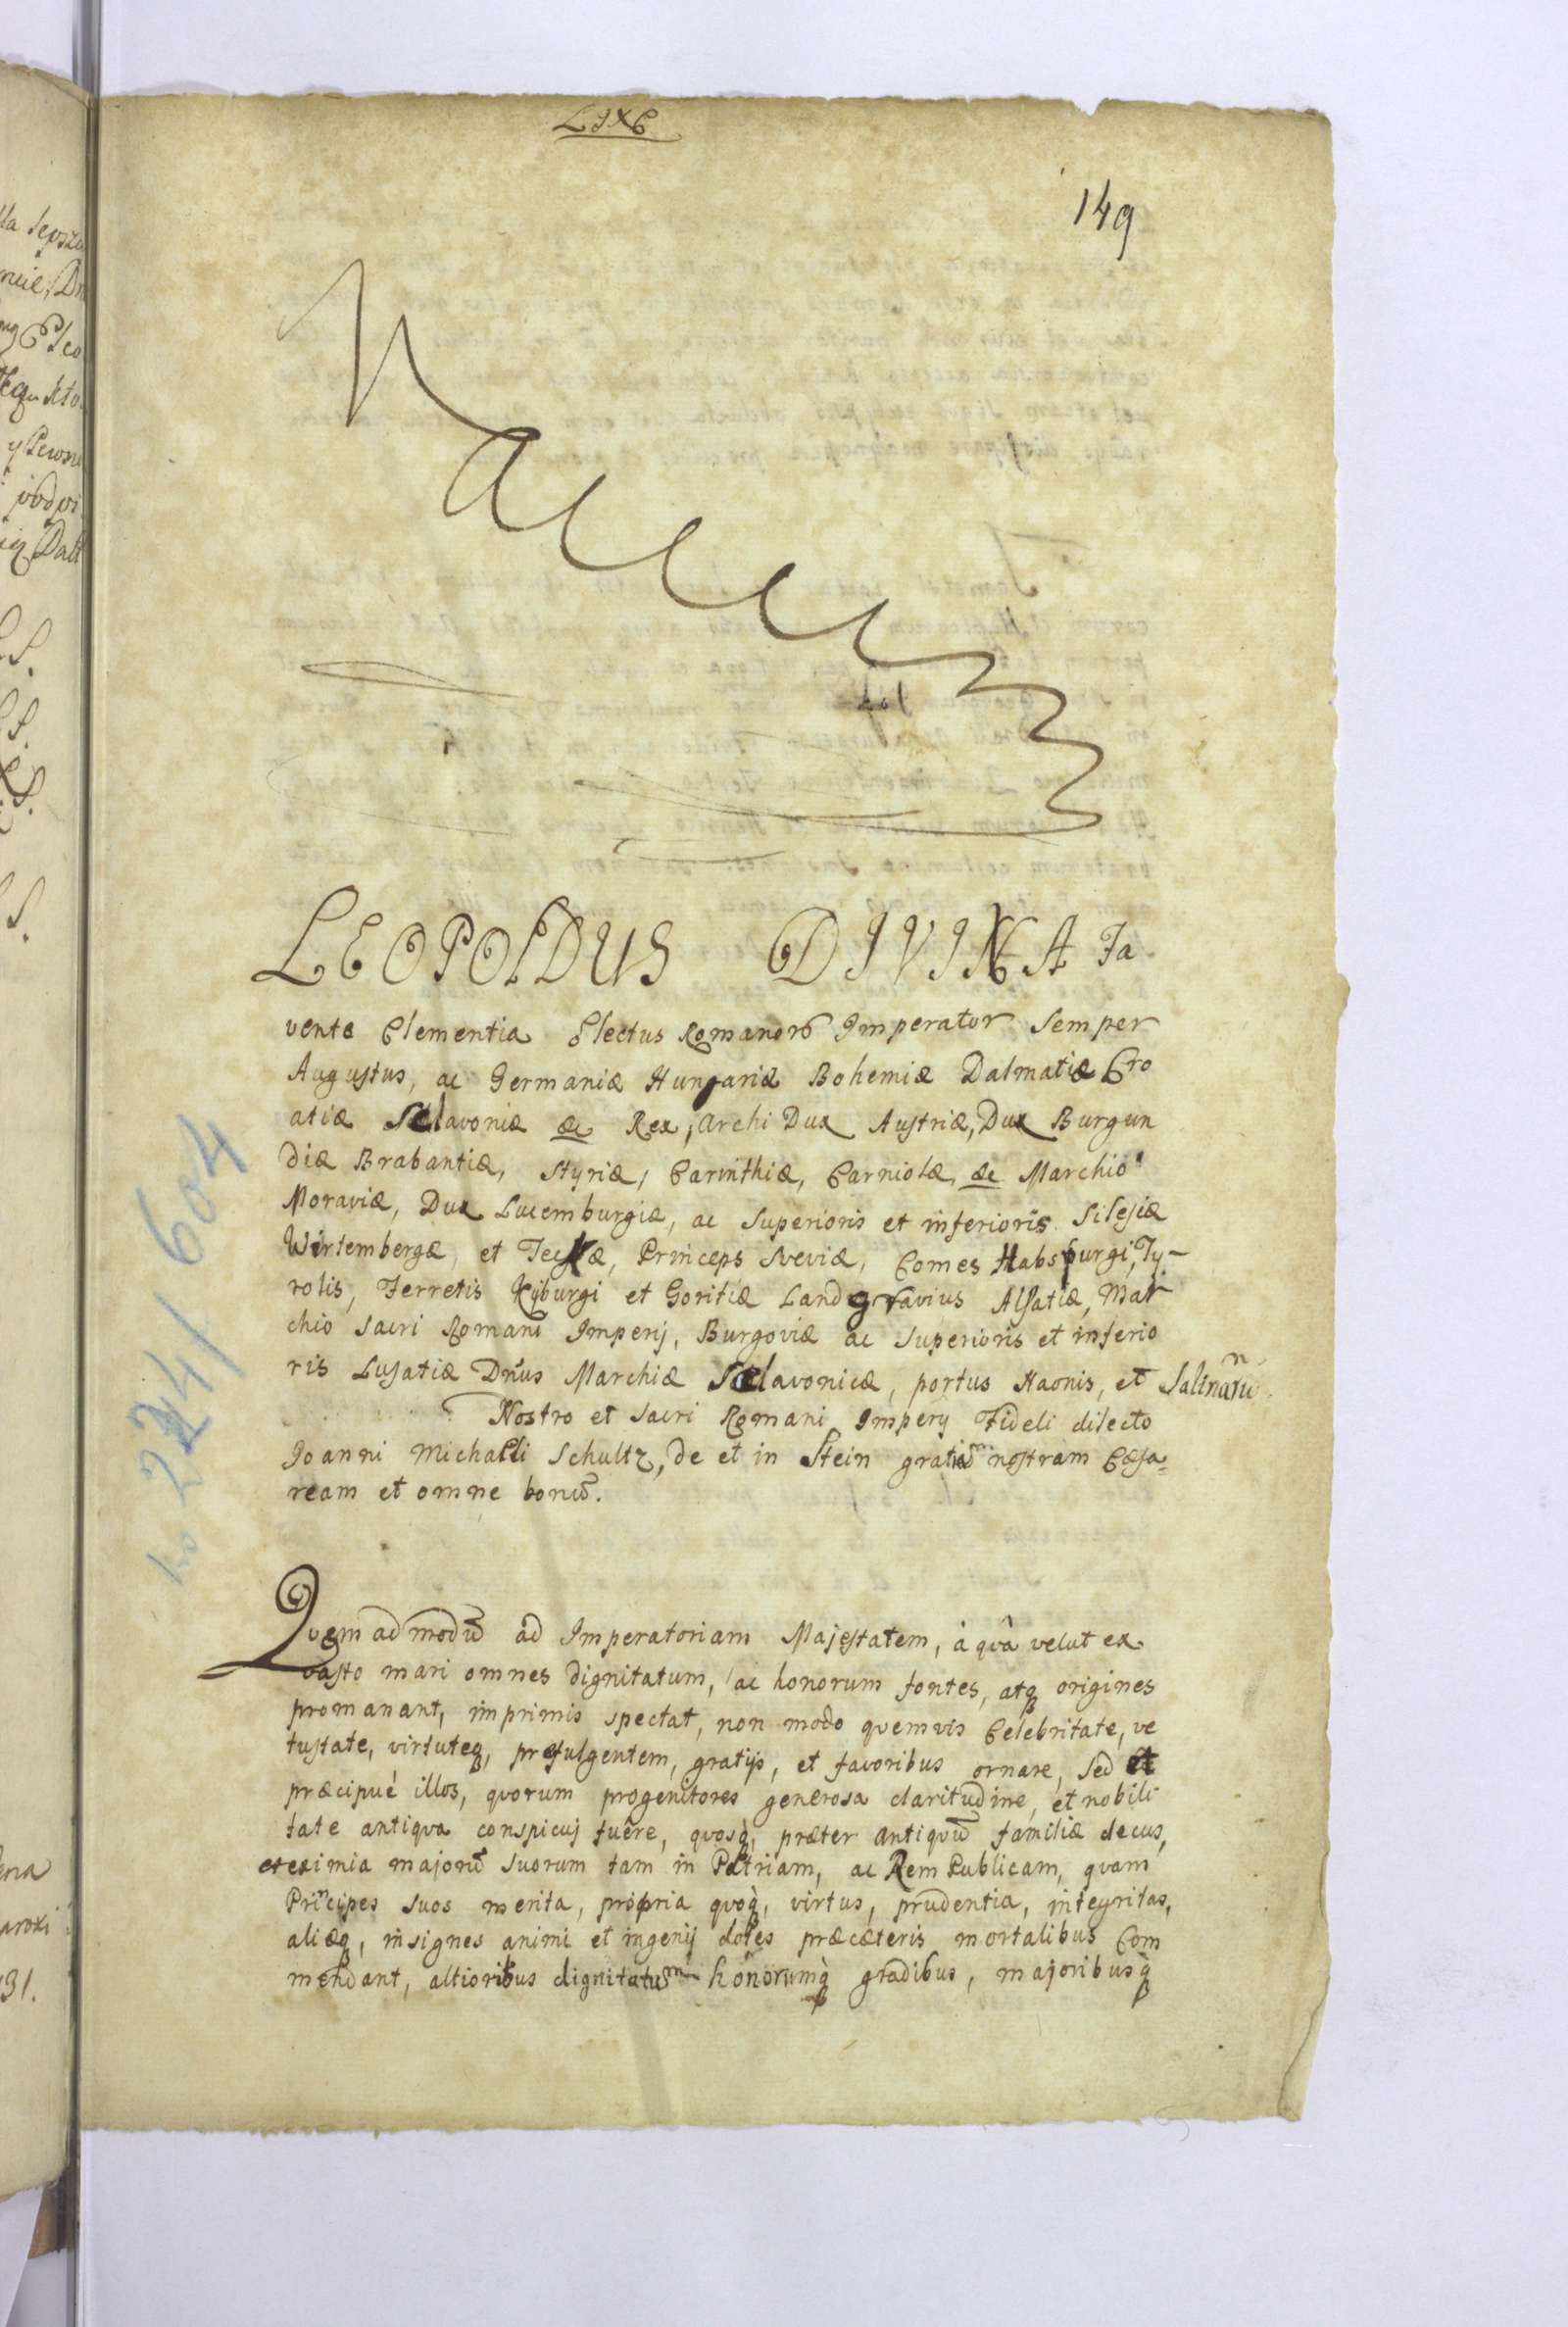 149
Vacuum
LEOPOLDUS DIVINA Fa
vente Clementia Electus Romanorũ Imperator Semper
Augustus, ac Germaniæ Hungariæ Bohemiæ Dalmatiæ Cro
atiæ Sclavoniæ &c Rex, Archi Dux Austriæ, Dux Burgun
diæ Brabantiæ, Styriæ, Carinthiæ, Carniolæ, &c Marchio
Moraviæ, Dux Lucemburgiæ, ac Superioris et inferioris Silesiæ
Wirtembergæ, et Teckæ, Princeps Sveviæ, Comes Habspurgi, Ty-
rolis, Ferretis Kyburgi et Goritiæ Landgravius Alsatiæ, Mar
chio Sacri Romani Imperij, Burgoviæ ac Superioris et inferio
ris Lusatiæ Dñus Marchiæ Sclavonicæ, portus Haonis, et Salinarũ
Nostro et Sacri Romani Imperij Fideli dilecto
Joanni Michaeli Schultz, de et in Stein gratiam nostram Cæsa=
ream et omne bonũ.
Quemadmodũ ad Imperatoriam Majestatem, à quâ velut ex
vasto mari omnes dignitatum, ac honorum fontes, atq origines
promanant, imprimis spectat, non modo quemvis Celebritate, ve
tustate, virtuteq, prefulgentem, gratijs, et favoribus ornare, Sed et
præcipué illos, quorum progenitores generosa claritudine, et nobili
tate antiqua conspicuj fuêre, quosq, præter antiquũ familiæ decus,
et eximia majorũ suorum tam in Patriam, ac Rem Publicam, quam
Principes suos merita, propria quoq, virtus, prudentia, integritas,
aliæq, insignes animi et ingenij dotes præcæteris mortalibus Com
mendant, altioribus dignitatum honorumq gradibus, majoribusq
no 224/604